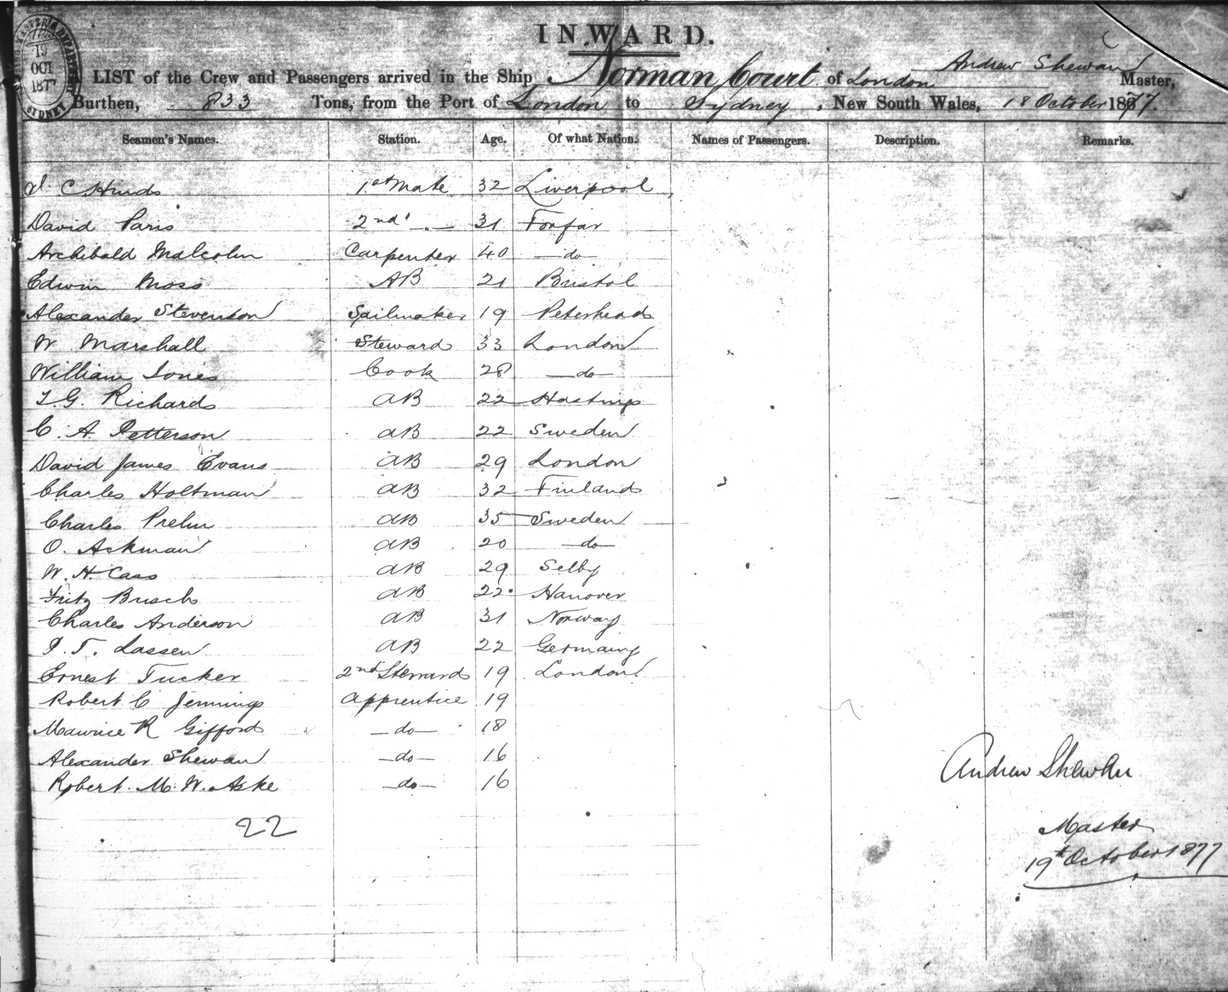 INWARD.
19
OCT
1877
SYDNEY
LIST of the Crew and Passengers arrived in the Ship Norman Court of London Andrew Shewan Master,
Burthen, 833 Tons, from the Port of London to Sydney, New South Wales, 18 October 1877.
Seamen's Names. Station. Age. Of what Nation. Names of Passengers. Description. Remarks.
C Hinds 1st Mate 32 Liverpool
David Paris 2nd " 31 Forfar
Archibald Malcolm Carpenter 40 do
Edwin Moss AB 21 Bristol
Alexander Stevenson Sailmaker 19 Peterhead
W Marshall Steward 33 London
William Jones Cook 28 do
T. G. Richards AB 22 Hastings
C. A. Petterson AB 22 Sweden
David James Evans AB 29 London
Charles Holtman AB 32 Finland
Charles Prehn AB 35 Sweden
O. Ackman AB 20 do
W. H. Cass AB 29 Selby
Fritz Busch AB 22 Hanover
Charles Anderson AB 31 Norway
P. T. Lassen AB 22 Germany
Ernest Tucker 2nd Steward 19 London
Robert C Jennings Apprentice 19
Maurice R Gifford do 18
Alexander Shewan do 16
Robert. M. W. Aske do 16
22
Andrew Shewan
Master
19th October 1877